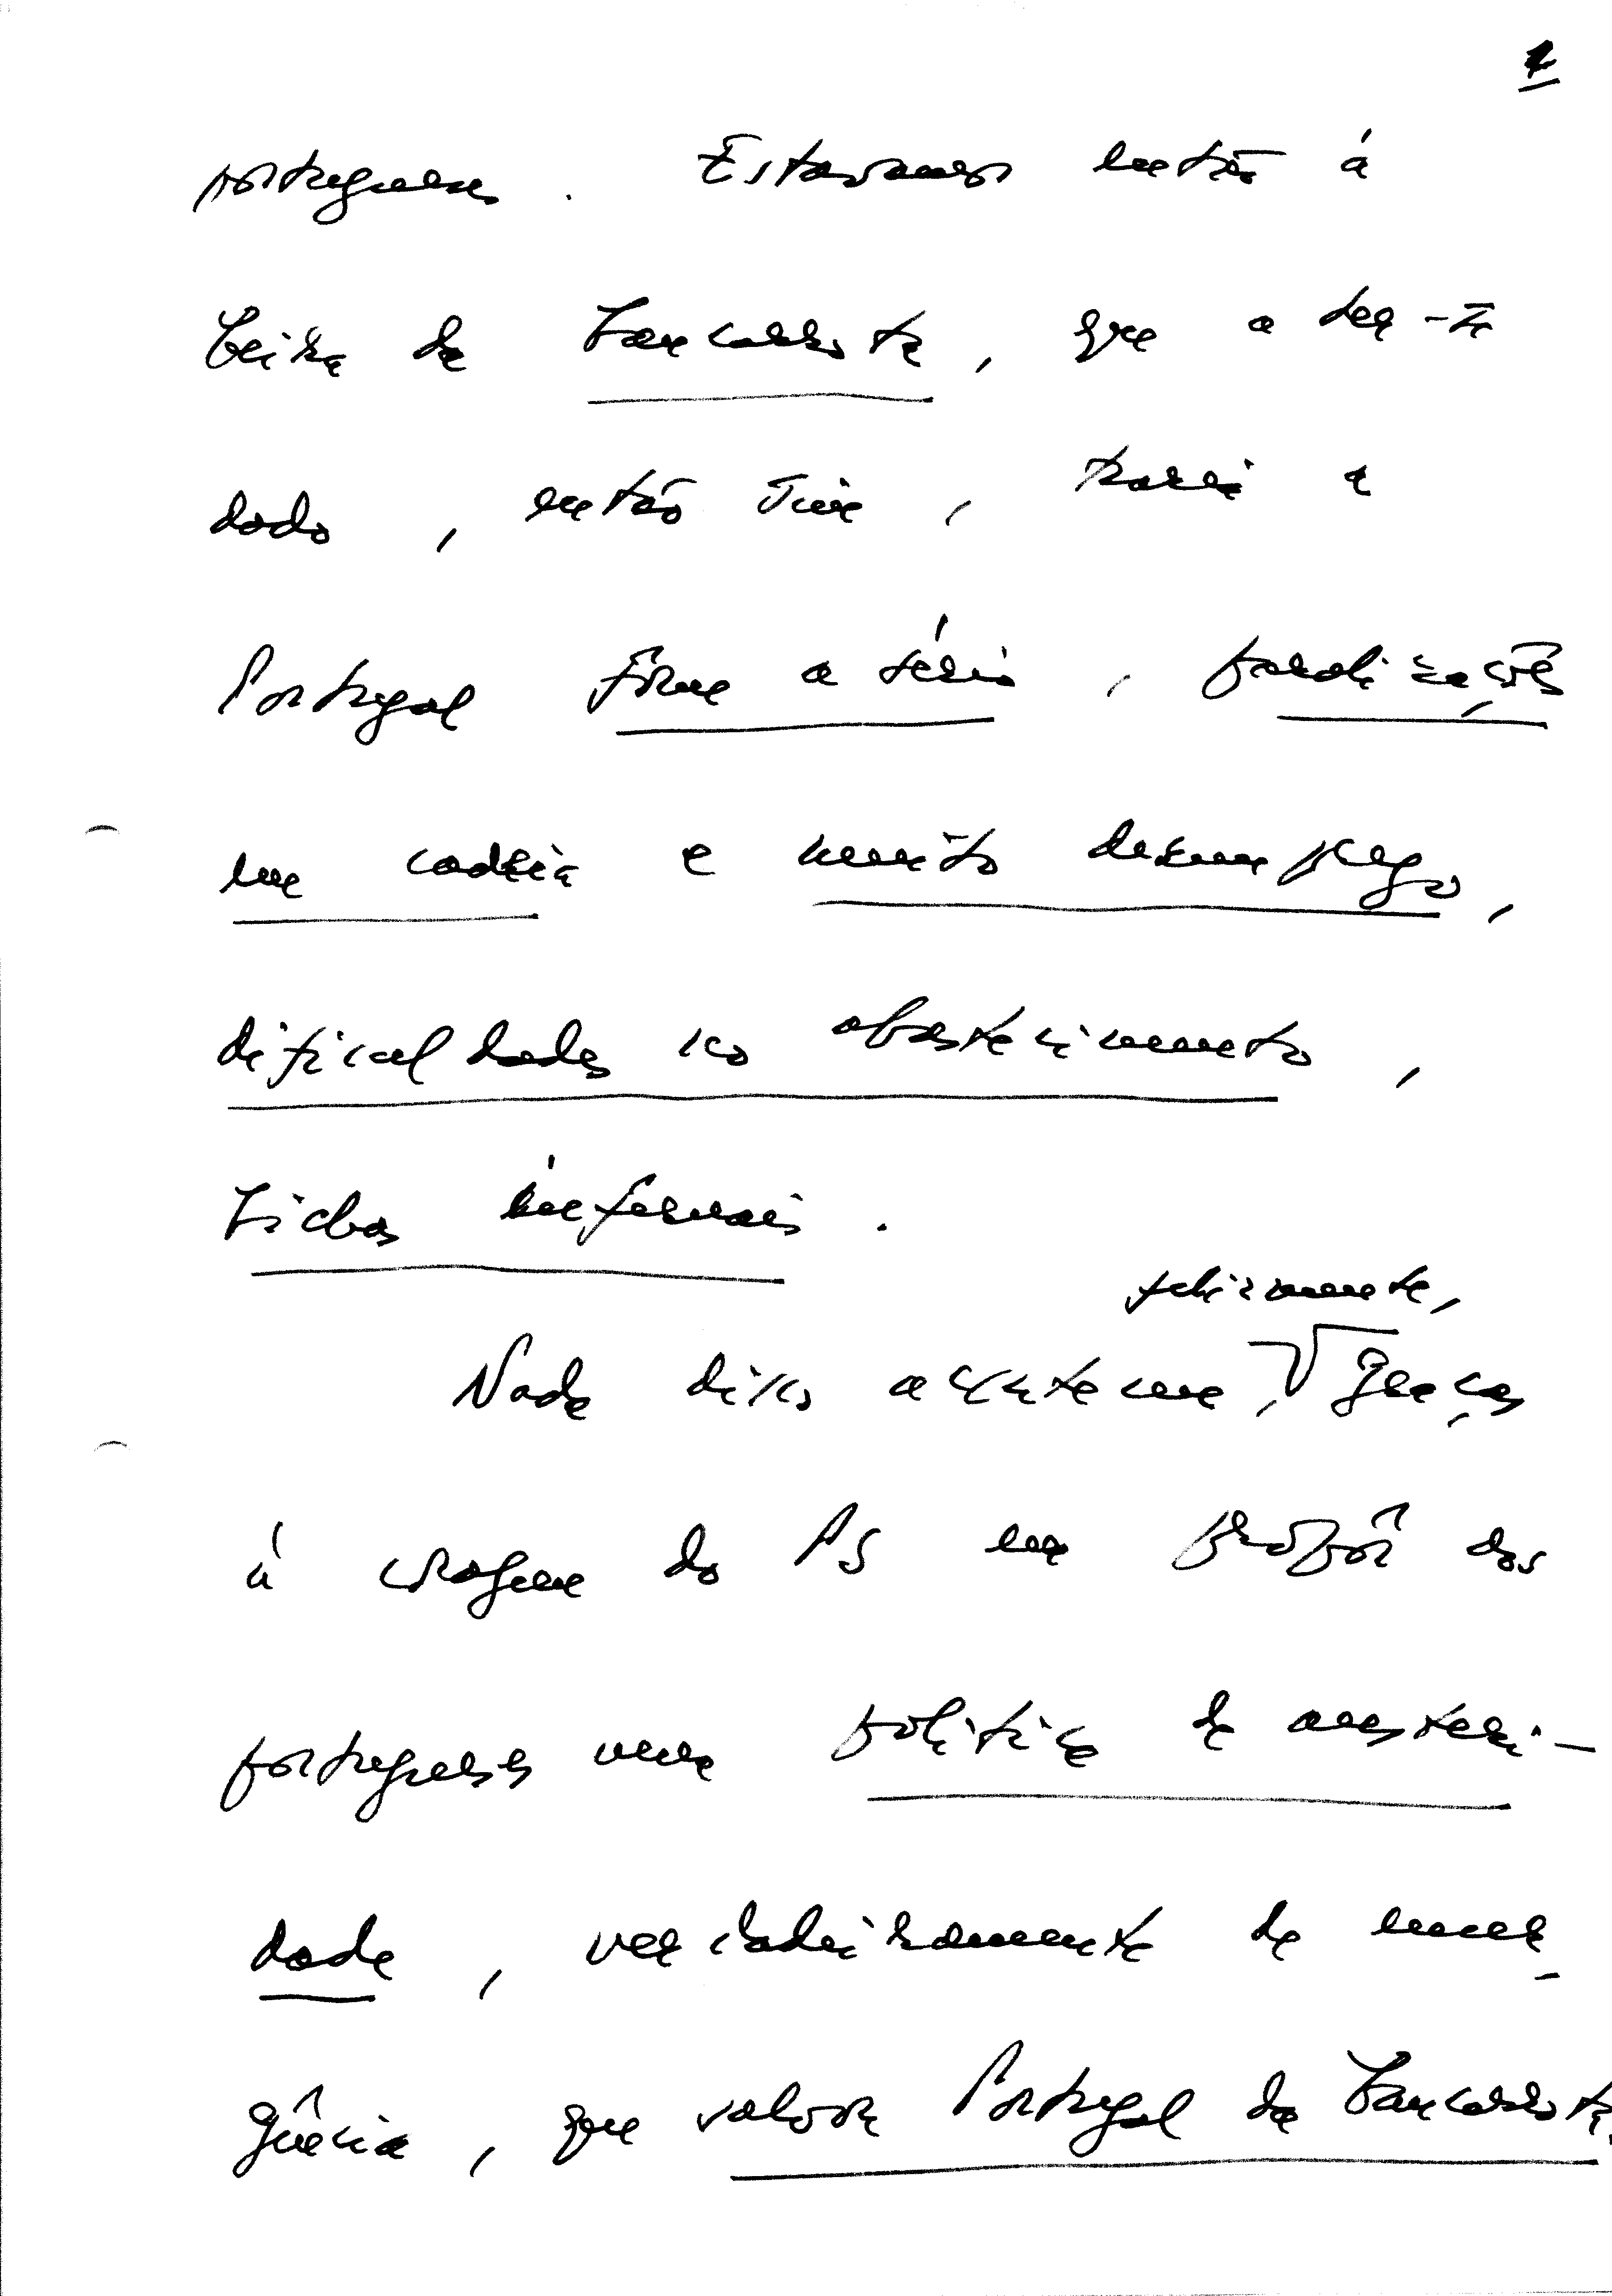 portuguesa. Estavamos então á
beira da bancarrota, que a ter-se
dado, então sim, traria a
Portugal fome a sério, paralizações
em cadeia e muito desemprego,
dificuldades no abastecimento,
bichas infernais.
felizmente,
Nada disso aconteceu, Graças
á coragem do PS em propôr aos
portugueses uma política de austeri-
dade, verdadeiramente de emer-
gência, que salvou Portugal da bancarrota.